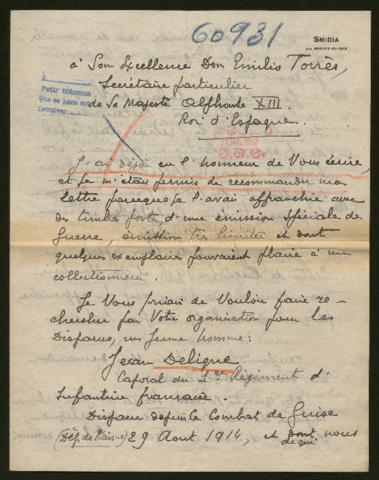 60931
SMIDIA
PAR MEDJEZ-EL-BAB
à Son Excellence Don Emilio Torrès,
Secrétaire particulier
de Sa Majesté Alphonse XIII.
Roi d'Espagne.
Pedir informes
Que se haga
Devolver
J'ai déjà eu l'honneur de Vous écrire,
et je m'étais permis de recommander ma
lettre parceque je l'avais affranchie avec
des timbres-poste d'une émission spéciale de
Guerre, émission très limitée et dont
quelques exemplaires pouvaient plaire à un
collectionneur.
Je Vous priais de Vouloir faire re-
chercher par Votre organisation pour les
Disparus, un Jeune homme:
Jean Deligne
Caporal du 1er Régiment d'
Infanterie française.
Disparu depuis le Combat de Guise
(Dép. de l'aisne) 29 Aout 1914, et dont nous
de qui